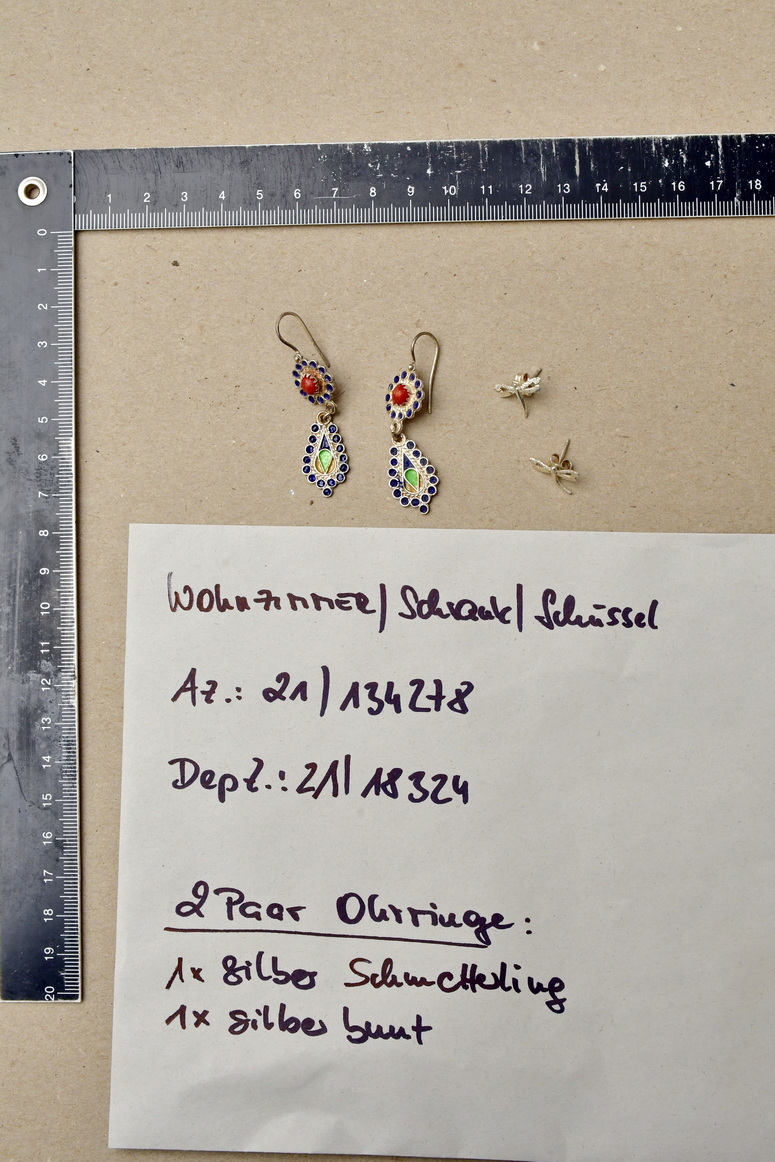 1 2 3 4 5 6 7 8 9 10 11 12 13 14 15 16 17 18
0
1
2
3
4
5
6
7
8
9
10
11
12
13
14
15
16
17
18
19
20
WOHNZIMMER/ Schrank/ Schüssel
Az.: 21/134278
Depz.: 21/18324
2 Paar Ohrringe:
1x silber Schmetterling
1x silber bunt